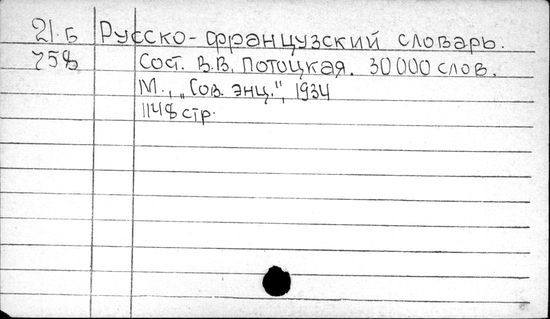 21.Б Русско-французский словарь.
758 Сост. В.В. Потоцкая. 30000 слов.
М., „Сов. энц.", 1934
1148 стр.